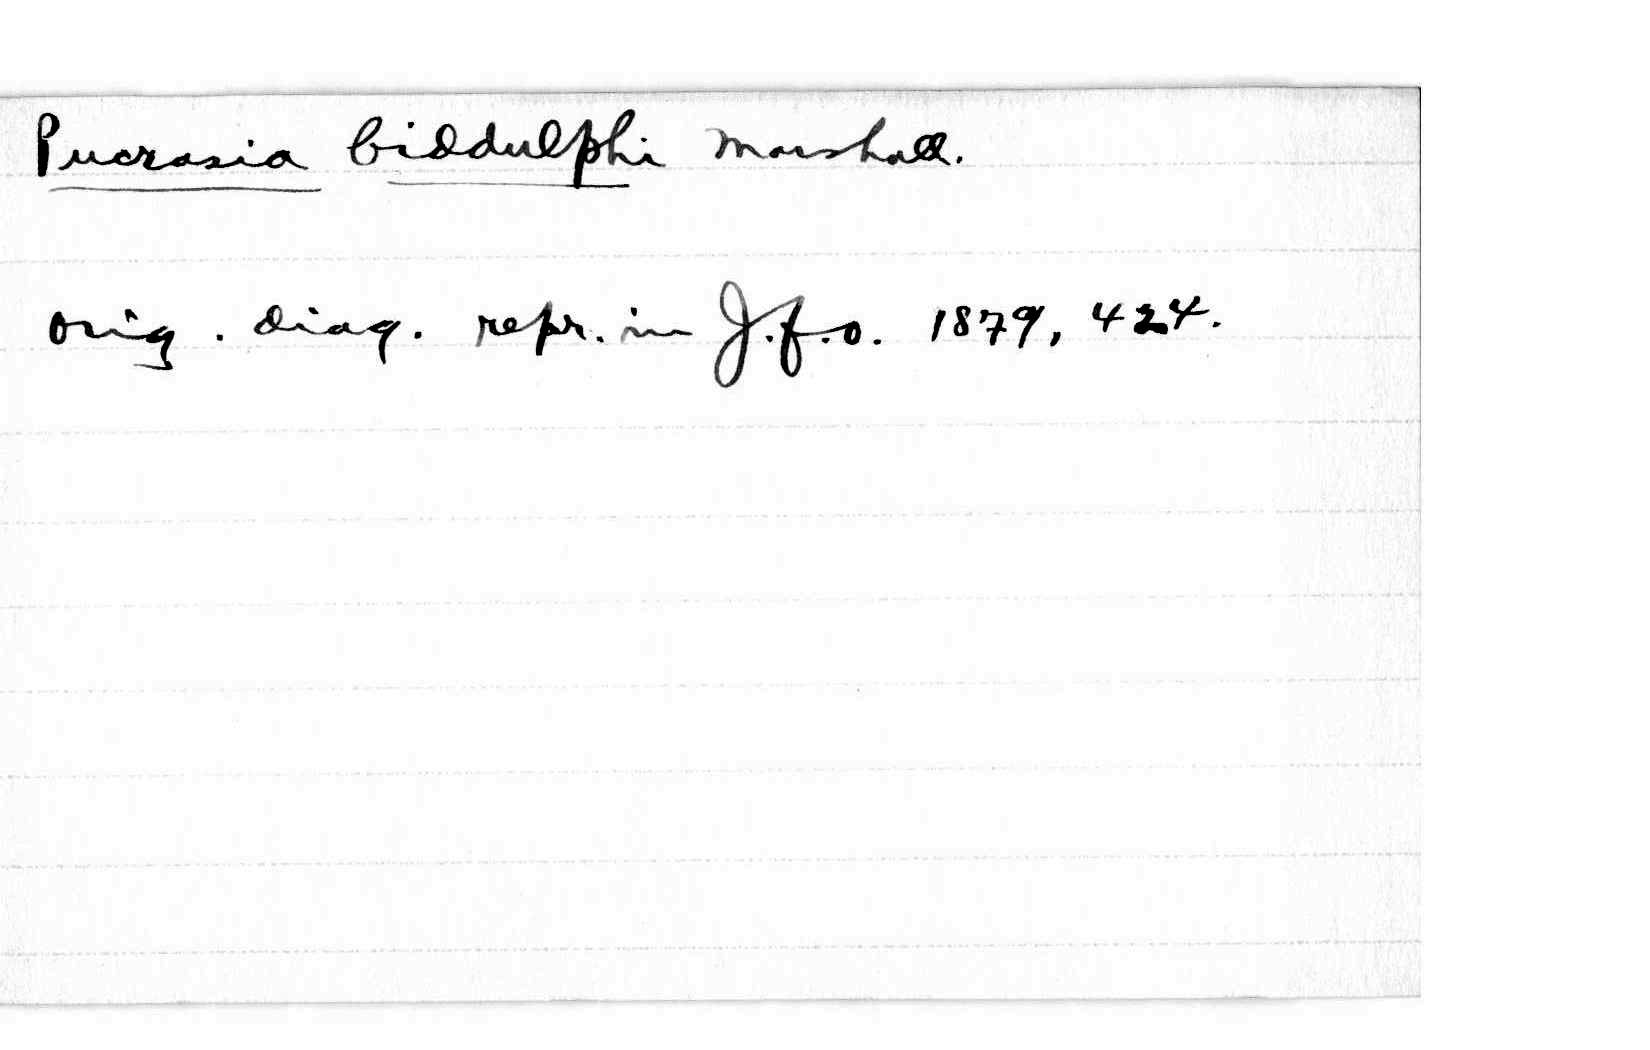 Pucrasia biddulphi Marshall.
Orig. diag. repr. in J.f.O. 1879, 424.